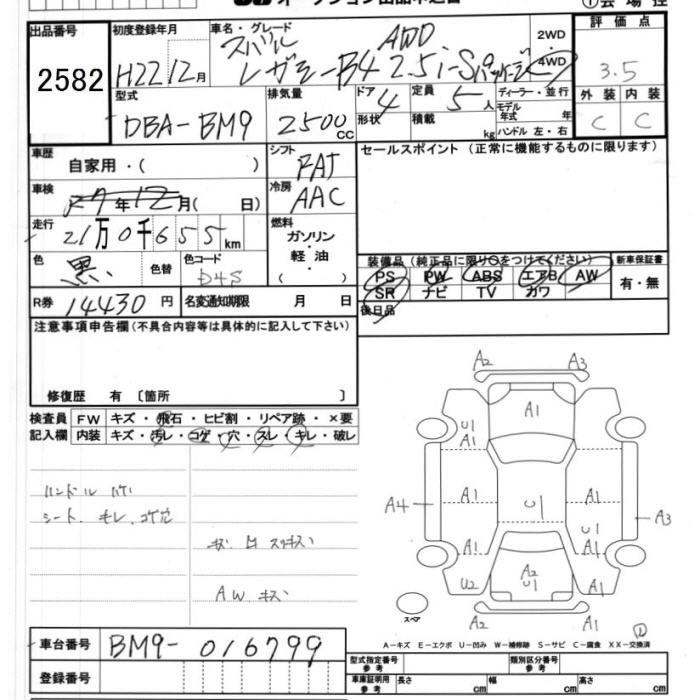 オークション出品申込書
①会場控
出品番号
2582
初度登録年月
H22 12月
車名・グレード
スバル AWD
レガシーB4 2.5i-Sパッケージ
2WD
・
4WD
評価点
3.5
型式
DBA-BM9
排気量
2500cc
ドア
4
形状
定員
5人
積載
kg
ディーラー・並行
モデル年式 年
ハンドル 左・右
外装 内装
C C
車歴
自家用・( )
シフト
FAT
セールスポイント (正常に機能するものに限ります)
車検
R7年12月( 日)
冷房
AAC
走行
21万0千655km
燃料
ガソリン
・
軽油
( )
色
黒
色替
色コード
D4S
装備品(純正品に限り○をつけてください)
PS PW ABS エアB AW
SR ナビ TV カワ
新車保証書
有・無
R券 14430円
名変通知期限 月 日
後日品
注意事項申告欄(不具合内容等は具体的に記入して下さい)
修復歴 有 〔箇所 〕
検査員 FW キズ・飛石・ヒビ割・リペア跡・×要
記入欄 内装 キズ・汚レ・コゲ・穴・スレ・キレ・破レ
ハンドル ハゲ
シート、キレ、コゲ穴
AW キズ
A2 A3
A1
U1
A1
A4 A1 U1 A1 A3
U1
A1 A1
U2 A2 U1 A1
A2 A1
スペア
A-キズ E-エクボ U-凹み W-補修跡 S-サビ C-腐食 XX-交換済
車台番号 BM9-016799
登録番号
型式指定番号
参考
類別区分番号
参考
車庫証明用
参考
長さ cm 幅 cm 高さ cm